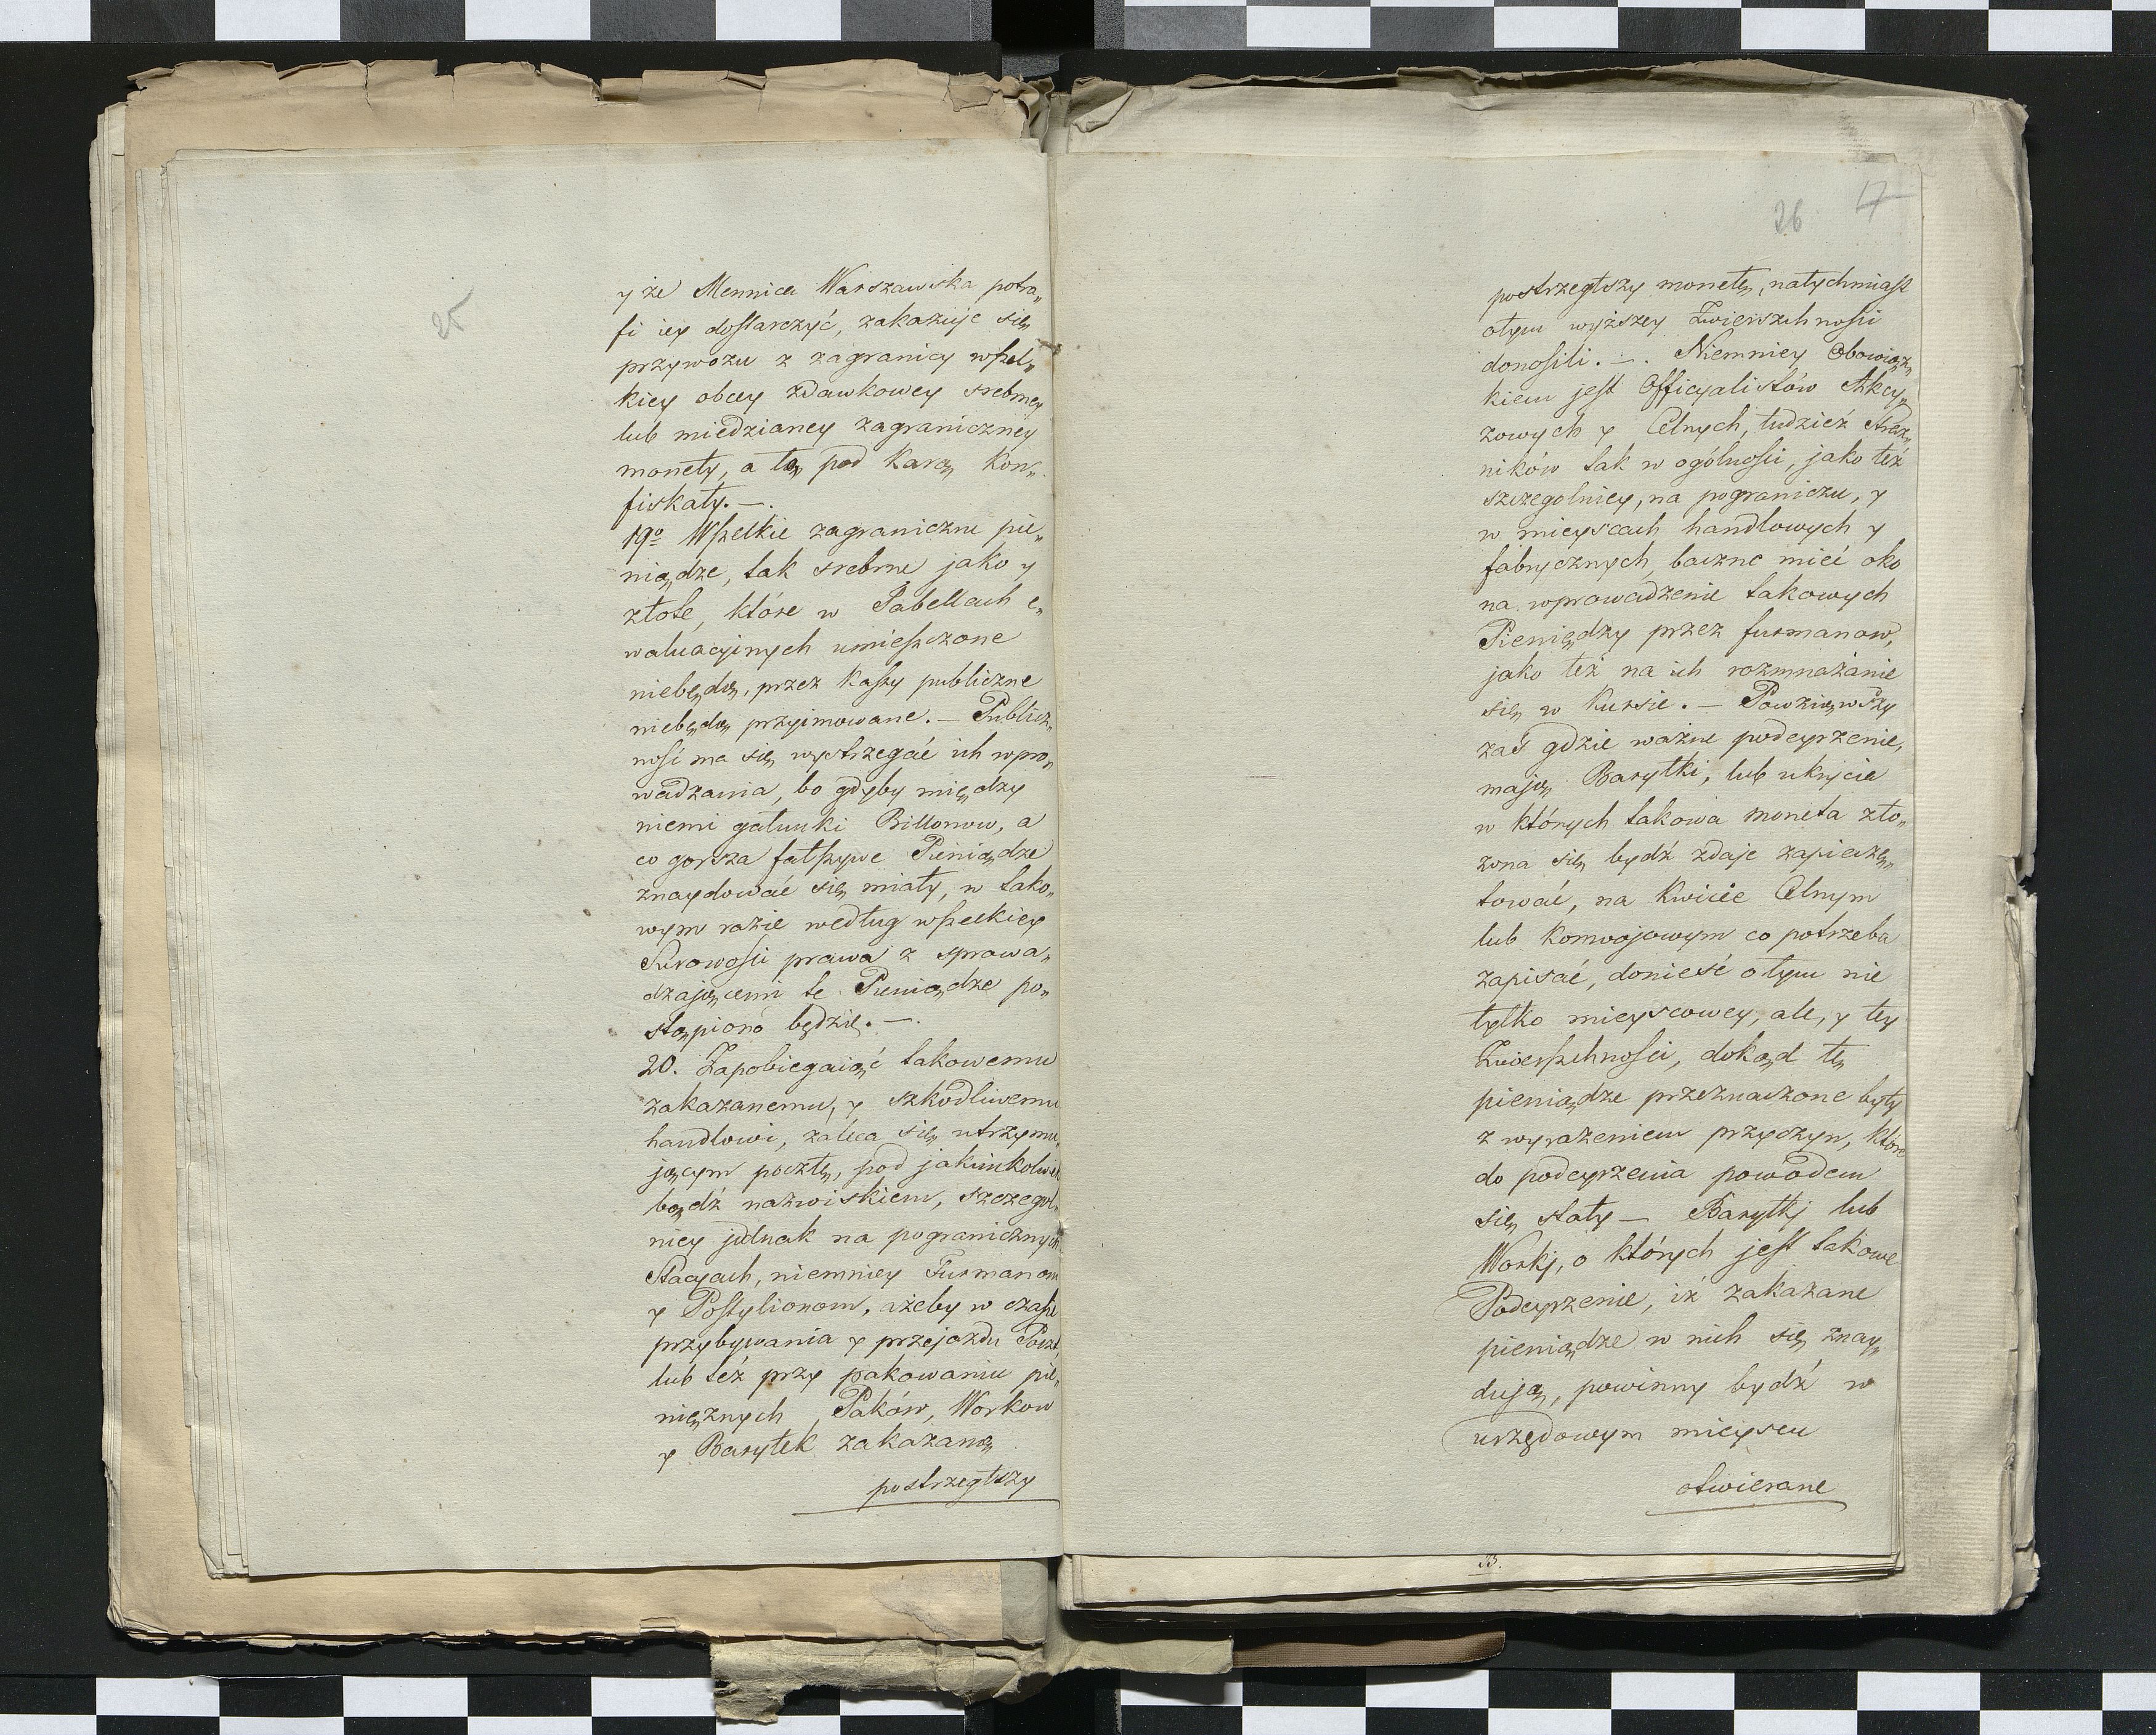 25
y że Mennica Warszawska potra„
fi iey dostarczyć, zakazuje się
przywozu z zagranicy wszel„
kiey obcey zdawkowey srebrney
lub miedzianey zagraniczney
monety, a to pod karą kon„
fiskaty.—.
19o Wszelkie zagraniczne pie„
niądze, tak srebrne jako y
złote, które w Tabellach e„
waluacyinych umieszczone
niebędą, przez Kassy publiczne
niebędą przyimowane.— Publicz„
ność ma się wystrzegać ich wpro„
wadzania, bo gdyby między
niemi gatunki Billonow, a
co gorsza fałszywe Pieniądze
znaydować się miały, w tako„
wym razie według wszelkiey
Surowości prawa z sprowa„
dzającemi te Pieniądze po„
stąpiono będzie.—.
20. Zapobiegaiąc takowemu
zakazanemu, y szkodliwemu
handlowi, zaleca się utrzymu„
jącym pocztę, pod jakimkolwiek
bądź nazwiskiem, szczegol„
niey jednak na pogranicznych
Stacyach, niemniey Furmanom
y Postylionom, ażeby w czasie
przybywania y przejazdu Poczt,
lub też przy pakowaniu pie„
niężnych Paków, Workow
y Baryłek zakazaną
postrzegłszy
26 17
postrzegłszy monetę, natychmiast
otym wyższey Zwierzchności
donosili.—. Niemniey Obowiąz„
kiem jest Officyalistów Akcy„
zowych y Celnych, tudzież Straż„
ników tak w ogólności, jako też
szczegolniey, na pograniczu, y
w mieyscach handlowych y
fabrycznych, baczne mieć oko
na wprowadzenie takowych
Pieniędzy przez furmanow,
jako też na ich rozmnażanie
się w kursie.— Powziąwszy
zaś gdzie ważne podeyrzenie,
mają Baryłki, lub ukrycia
w których takowa moneta zło„
żona się bydź zdaje zapieczę„
tować, na Kwicie Celnym
lub Konwojowym co potrzeba
zapisać, donieść o tym nie
tylko mieyscowey, ale, y tey
Zwierzchności, dokąd te
pieniądze przeznaczone były
z wyrażeniem przyczyn, które
do podeyrzenia powodem
się stały — Baryłkj lub
Workj, o których jest takowe
Podeyrzenie, iż zakazane
pieniądze w nich się znay„
dują, powinny bydź w
urzędowym mieyscu
otwierane